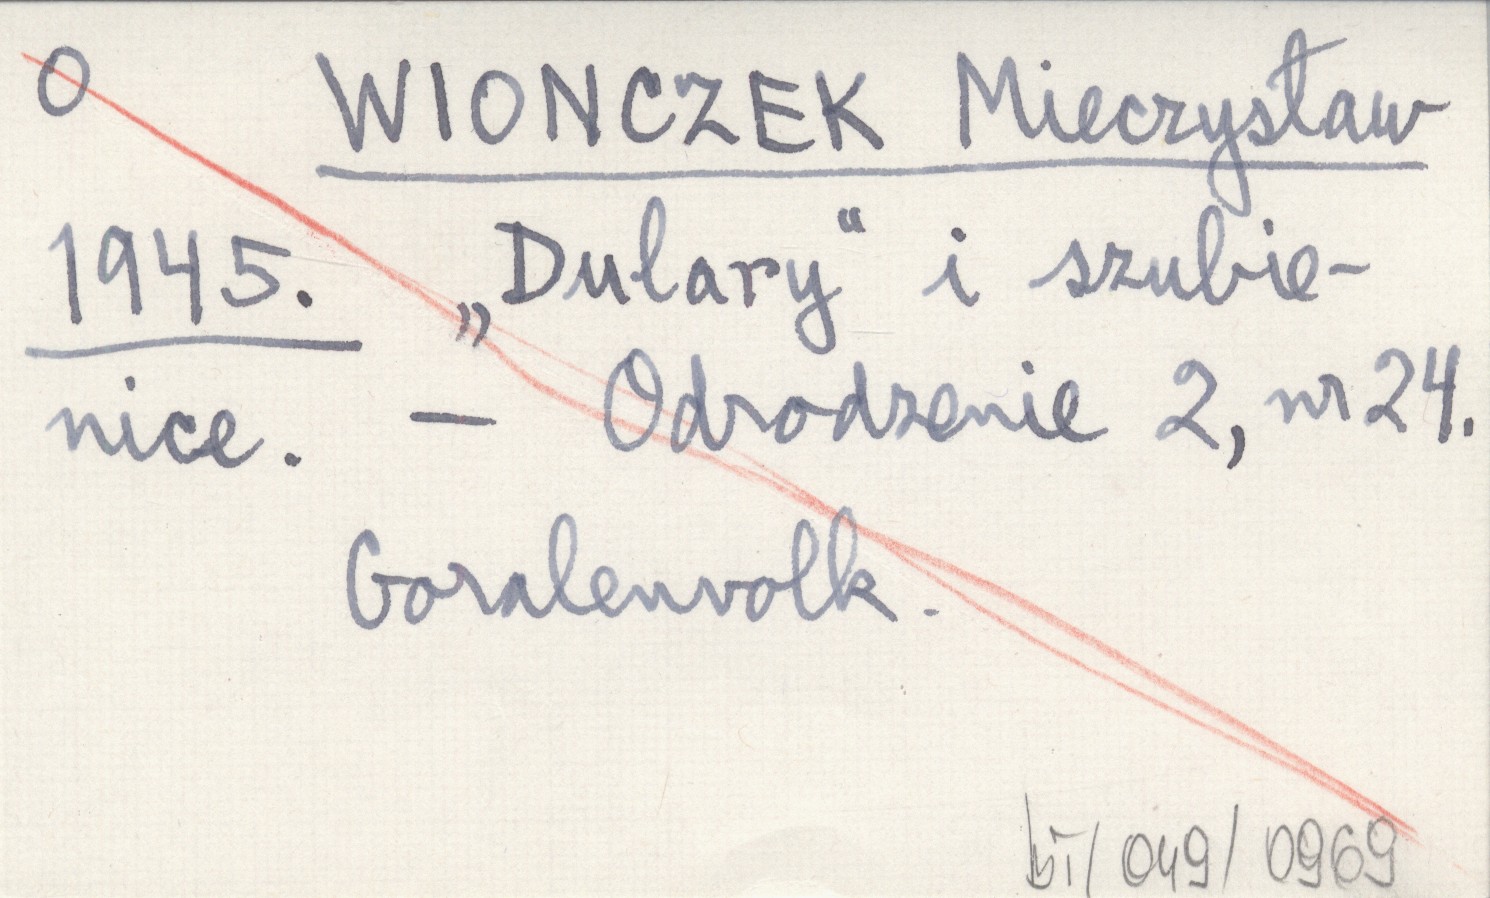 O WIONCZEK Mieczysław
1945. „Dulary“ i szubie-
nice. — Odrodzenie 2, nr 24.
Goralenvolk.
bT/049/0969